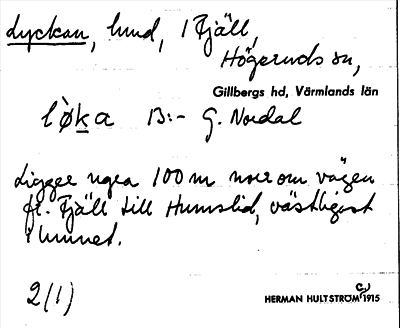 Lyckan, lund, i Fjäll,
Högeruds sn,
Gillbergs hd, Värmlands län
lø̀ka B:- G. Nordal
Ligger ngra 100 m norr om vägen
fr. Fjäll till Humslid, västligast
i lunnet.
2(1)
HERMAN HULTSTRÖM 1915